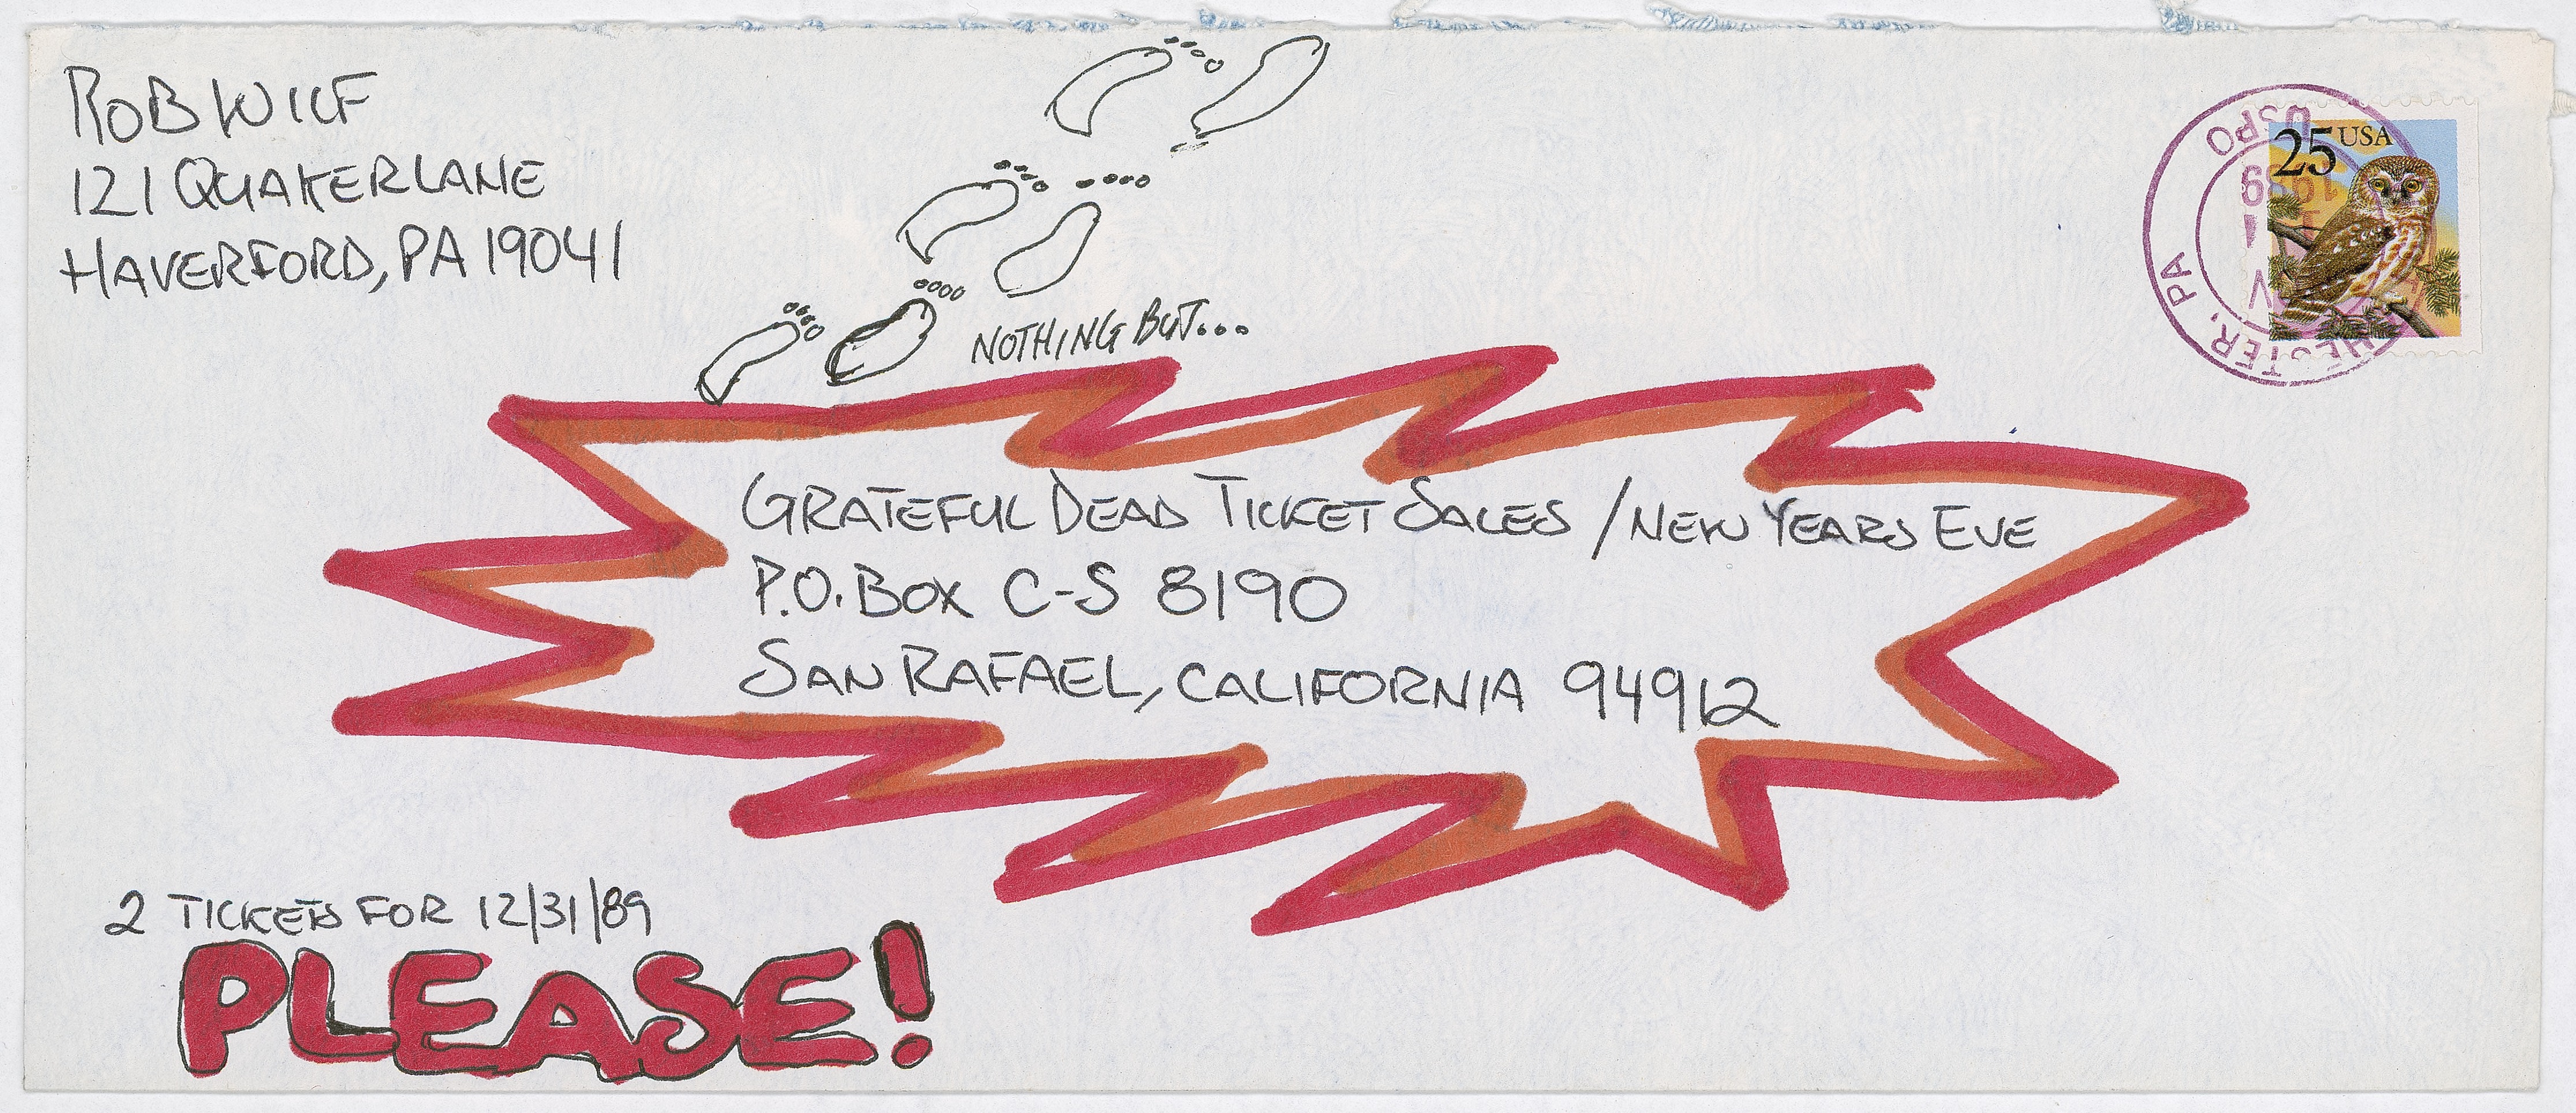 ROB WILF
121 QUAKER LANE
HAVERFORD, PA 19041
NOTHING BUT...
25 USA
USPO
1989
CHESTER, PA
GRATEFUL DEAD TICKET SALES / NEW YEARS EVE
P.O. BOX C-S 8190
SAN RAFAEL, CALIFORNIA 94912
2 TICKETS FOR 12/31/89
PLEASE!